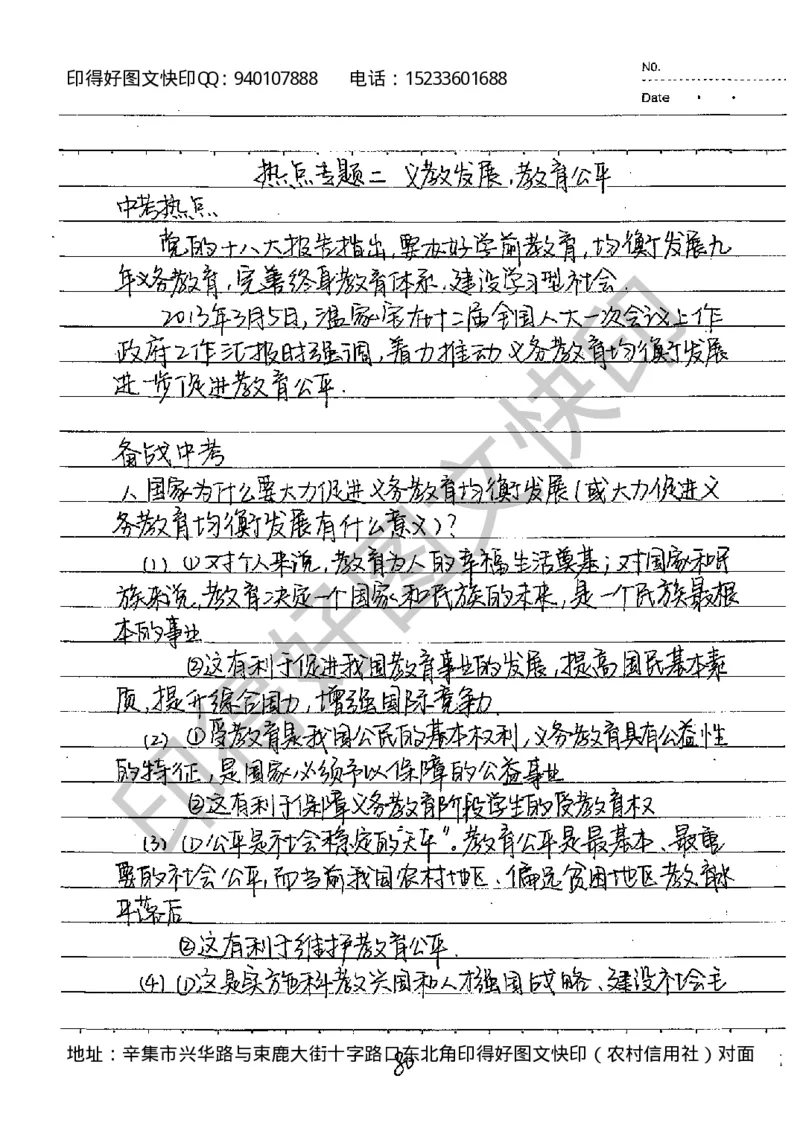 印得好图文快印QQ：940107888 电话：15233601688
NO.
Date
热点专题二 义教发展,教育公平
中考热点
党的十八大报告指出,要办好学前教育,均衡发展九
年义务教育,完善终身教育体系,建设学习型社会.
2013年3月5日,温家宝在十二届全国人大一次会议上作
政府工作汇报时强调,着力推动义务教育均衡发展
进一步促进教育公平.
备战中考
1、国家为什么要大力促进义务教育均衡发展(或大力促进义
务教育均衡发展有什么意义)?
(1) ①对个人来说,教育为人的幸福生活奠基;对国家和民
族来说,教育决定一个国家和民族的未来,是一个民族最根
本的事业
②这有利于促进我国教育事业的发展,提高国民基本素
质,提升综合国力,增强国际竞争力
(2) ①受教育是我国公民的基本权利,义务教育具有公益性
的特征,是国家必须予以保障的公益事业
②这有利于保障义务教育阶段学生的受教育权
(3) ①公平是社会稳定的"天平"。教育公平是最基本、最重
要的社会公平,而当前我国农村地区、偏远贫困地区教育水
平落后
②这有利于维护教育公平.
(4) ①这是实施科教兴国和人才强国战略、建设社会主
地址：辛集市兴华路与束鹿大街十字路口东北角印得好图文快印（农村信用社）对面
80
印得好图文快印